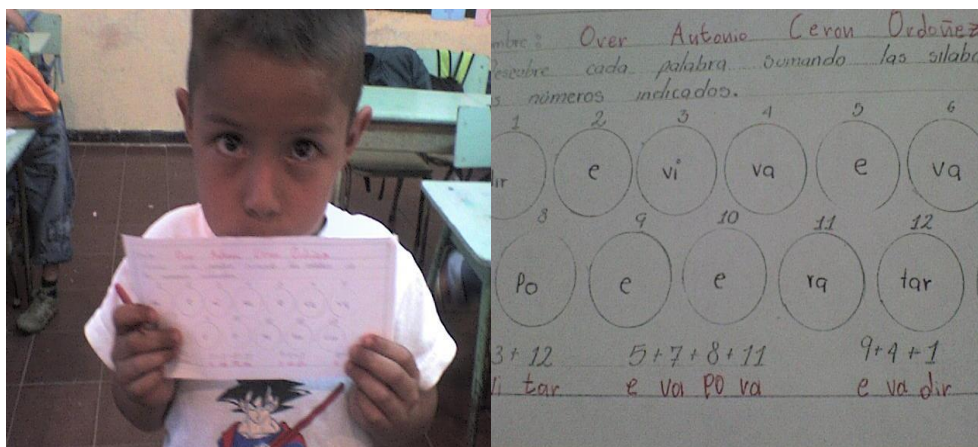 Over Antonio Ceron Ordoñez
cada palabra sumando las silabas
números indicados.
1 2 3 4 5 6
dir e vi va e va
8 9 10 11 12
Po e e ra tar
3+12 5+7+8+11 9+4+1
vi tar e va PO va e va dir